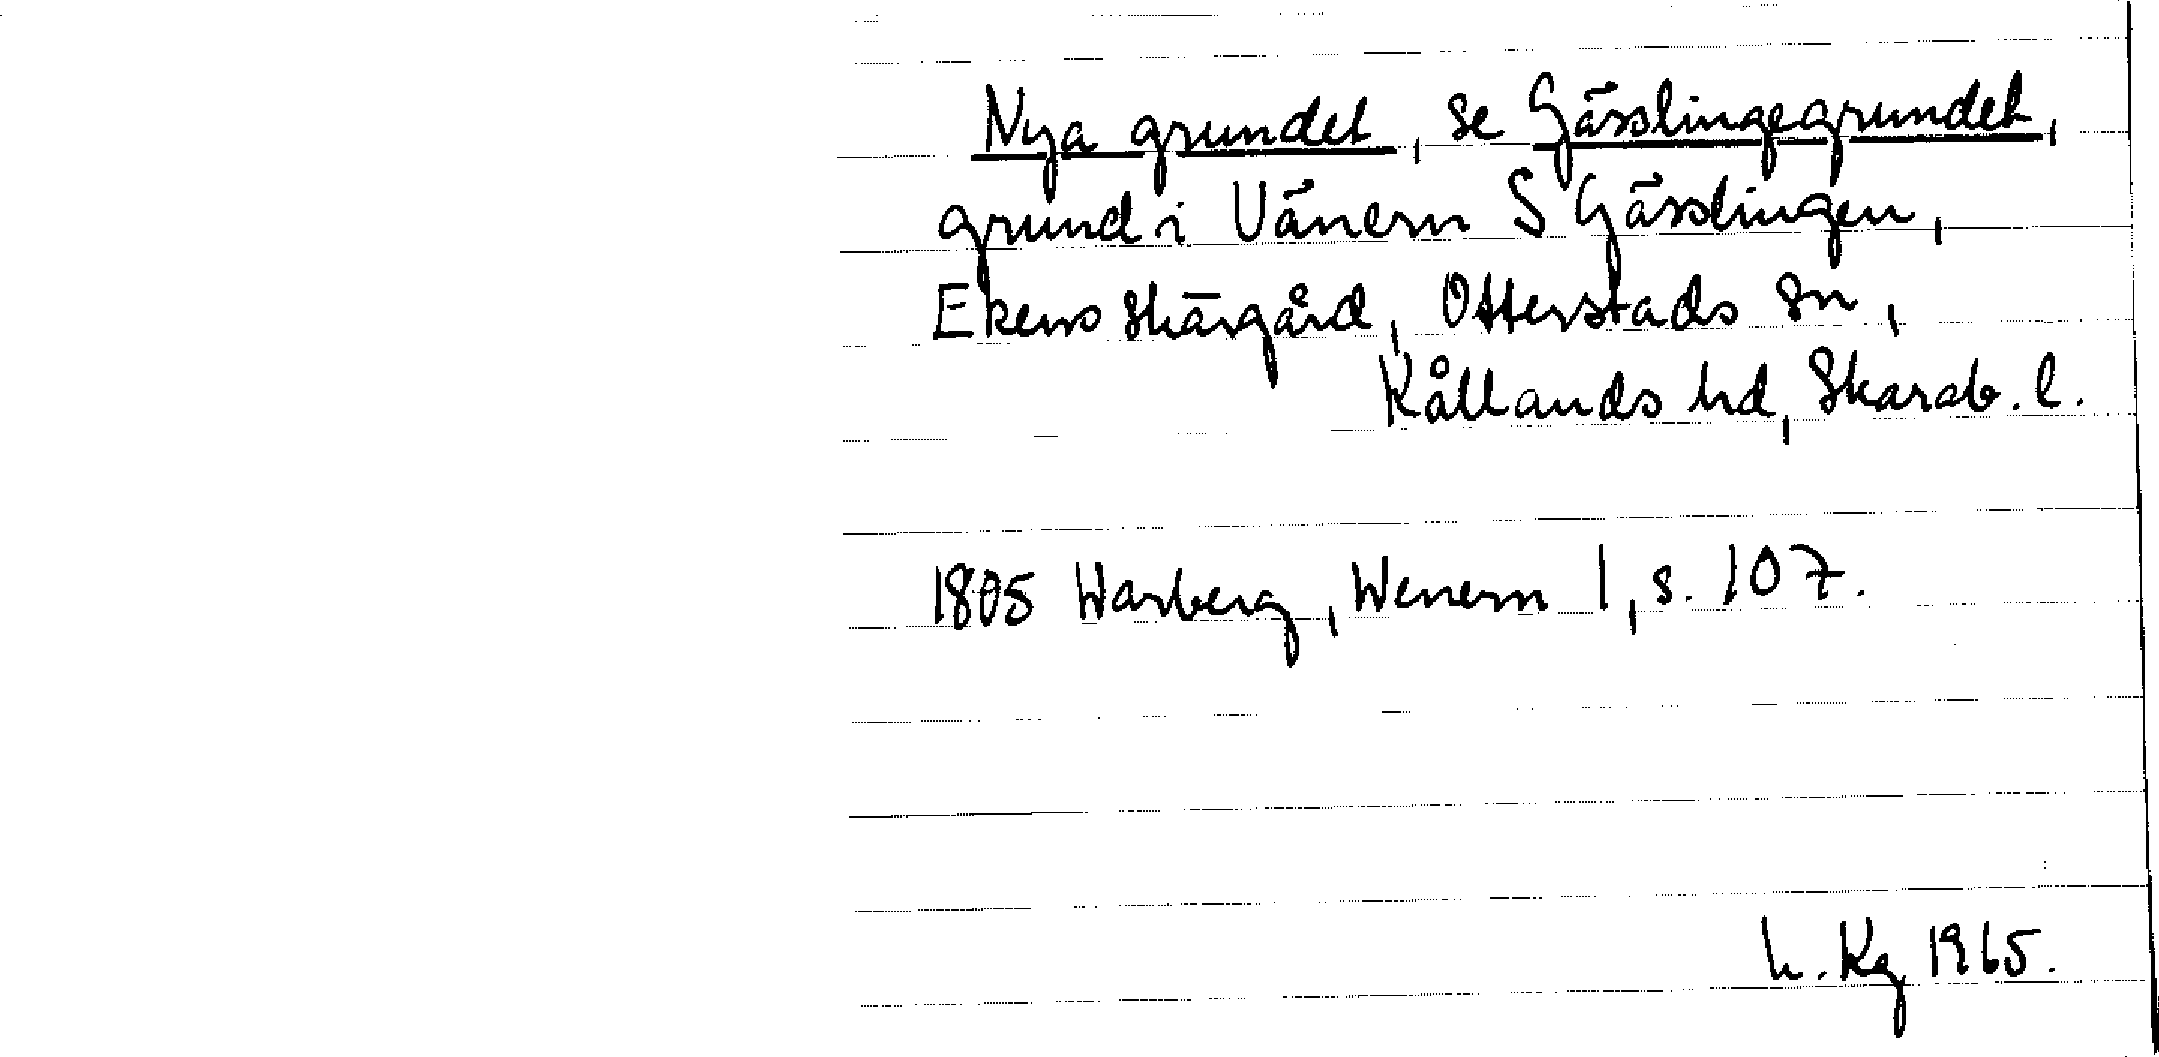 Nya grundet, se Gässlingegrundet,
grund i Vänern S Gässlingen,
Ekens skärgård, Otterstads sn,
Kållands hd, Skarab. l.
1805 Warberg, Wenern 1, s. 107.
h. Kg 1965.